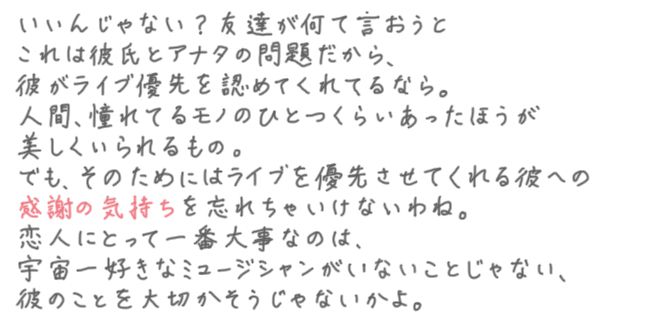 いいんじゃない？友達が何て言おうと
これは彼氏とアナタの問題だから、
彼がライブ優先を認めてくれてるなら。
人間、憧れてるモノのひとつくらいあったほうが
美しくいられるもの。
でも、そのためにはライブを優先させてくれる彼への
感謝の気持ちを忘れちゃいけないわね。
恋人にとって一番大事なのは、
宇宙一好きなミュージシャンがいないことじゃない、
彼のことを大切かそうじゃないかよ。